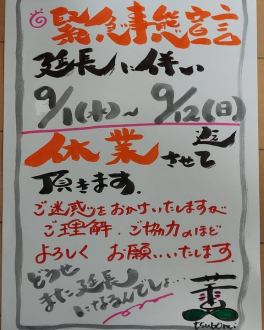 緊急事態宣言
延長に伴い
9/1(水)~9/12(日)
迄
休業させて
頂きます.
ご迷惑をおかけいたしますが
ご理解.ご協力のほど
よろしくお願いいたします.
どうせ
また延長
になるんでしょ…
tsubomi